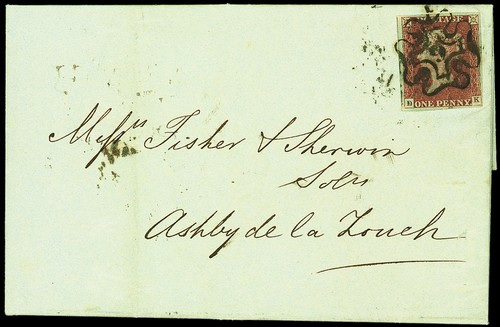 POSTAGE
B K
ONE PENNY
Messrs Fisher & Sherwin
Solrs
Ashby de la Zouch